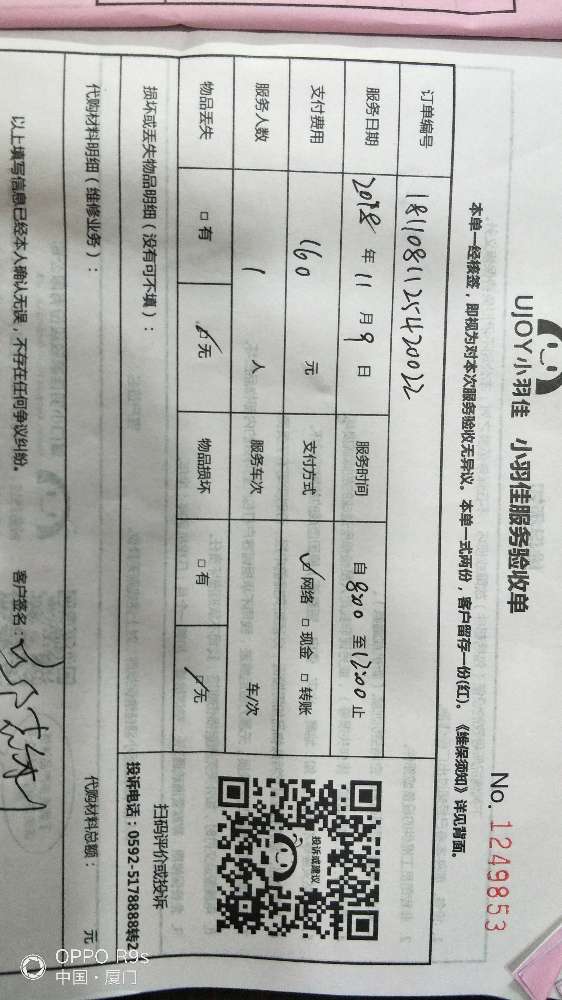 UJOY小羽佳 小羽佳服务验收单
No. 1249853
本单一经核签，即视为对本次服务验收无异议。本单一式两份，客户留存一份(红)。《维保须知》详见背面。
订单编号 1811081125420022
服务日期 2018 年 11 月 9 日 服务时间 自 8:00 至 12:00 止
支付费用 160 元 支付方式 ☑网络 □现金 □转账
服务人数 1 人 服务车次 车/次
物品丢失 □有 ☑无 物品损坏 □有 ☑无
投诉或建议
扫码评价或投诉
投诉电话：0592-5178888转2
损坏或丢失物品明细（没有可不填）：
代购材料明细（维修业务）： 代购材料总额： 元
以上填写信息已经本人确认无误，不存在任何争议纠纷。 客户签名：
OPPO R9s
中国·厦门